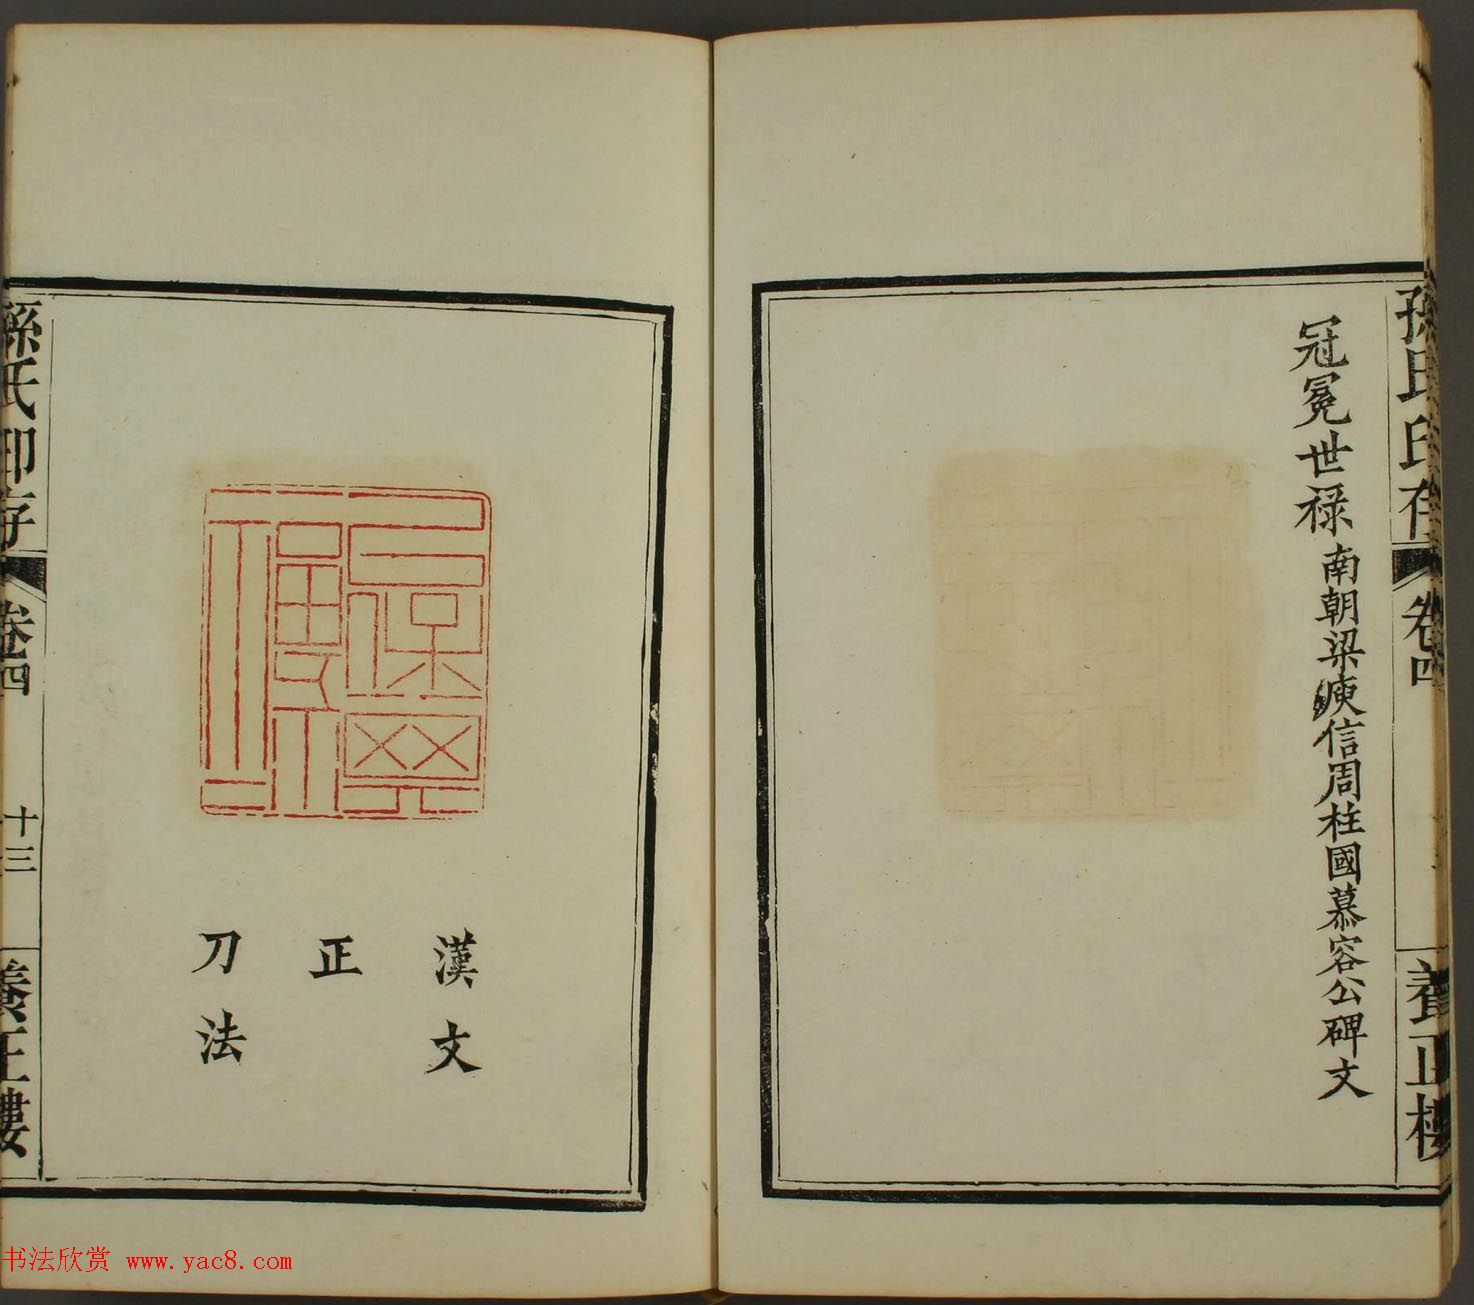 孫氏印存
卷四
養正樓
冠冕世禄 南朝梁庾信周柱國慕容公碑文
漢文
正
刀法
孫氏印存
卷四
十三
養正樓
书法欣赏 www.yac8.com